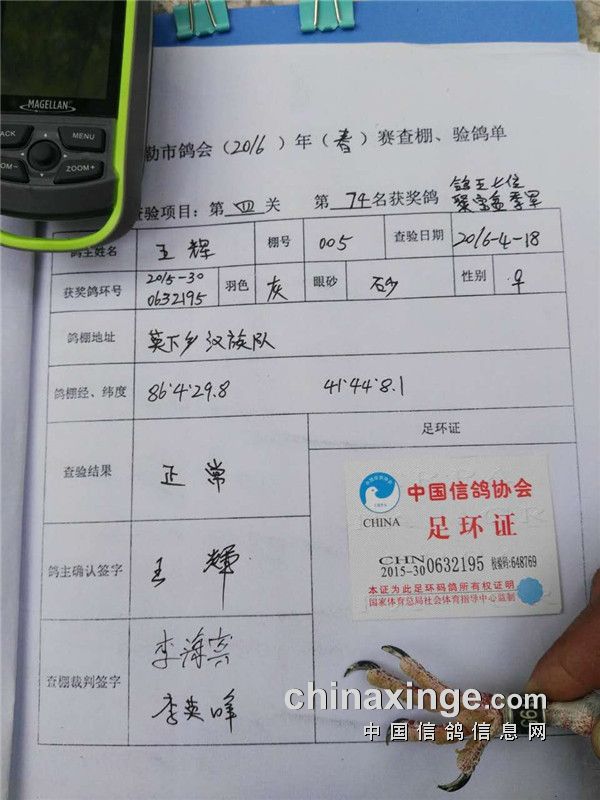 MAGELLAN
ACK
MENU
OM−
ZOOM+
勒市鸽会（2016）年（春）赛查棚、验鸽单
查验项目：第四关 第74名获奖鸽
鸽王七位
聚宝盆季军
鸽主姓名 王辉 棚号 005 查验日期 2016-4-18
获奖鸽环号 2015-30 0632195 羽色 灰 眼砂 砂 性别 ♀
鸽棚地址 英下乡汉族队
鸽棚经、纬度 86°4'29.8 41°44'8.1
查验结果 正常
足环证
中国信鸽协会
CHINA
足环证
CHN
2015-30 0632195 校验码:648769
本证为此足环码鸽所有权证明
国家体育总局社会体育指导中心监制
鸽主确认签字 王輝
查棚裁判签字 李海宾
李英峰
chinaxinge.com
中国信鸽信息网